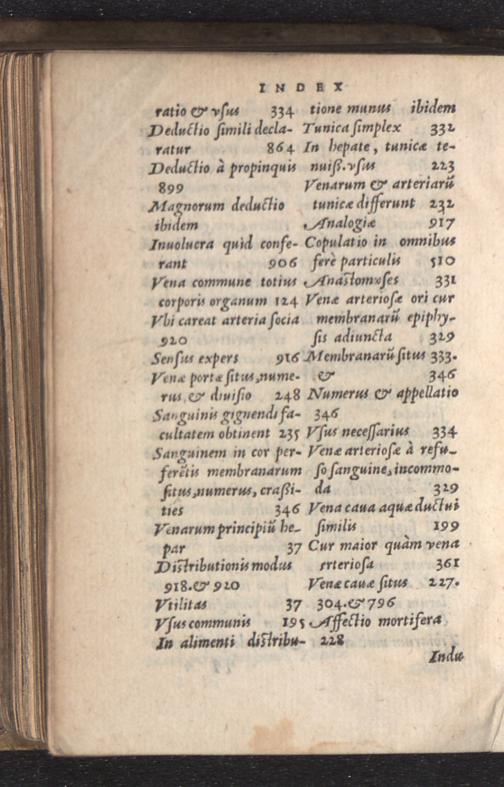 INDEX
ratio & vſus 334
Deductio ſimili decla-
ratur 864
Deductio à propinquis
899
Magnorum deductio
ibidem
Inuolucra quid confe-
rant 906
Vena commune totius
corporis organum 124
Vbi careat arteria ſocia
920
Senſus expers 916
Venæ portæ ſitus, nume-
rus, & diuiſio 248
Sanguinis gignendi fa-
cultatem obtinent 235
Sanguinem in cor per-
ferētis membranarum
ſitus, numerus, craßi-
ties 346
Venarum principiū he-
par 37
Diſtributionis modus
918. & 920
Vtilitas 37
Vſus communis 195
In alimenti diſtribu-
tione munus ibidem
Tunica ſimplex 332
In hepate, tunicæ te-
nuiß. vſus 223
Venarum & arteriarū
tunicæ differunt 232
Analogiæ 917
Copulatio in omnibus
ferè particulis 510
Anaſtomωſes 331
Venæ arterioſæ ori cur
membranarū epiphy-
ſis adiuncta 329
Membranarū ſitus 333.
& 346
Numerus & appellatio
346
Vſus neceſſarius 334
Venæ arterioſæ à refu-
ſo ſanguine, incommo-
da 329
Vena caua aquæductui
ſimilis 199
Cur maior quàm vena
arterioſa 361
Venæ cauæ ſitus 227.
304. & 796
Affectio mortifera
228
Indu